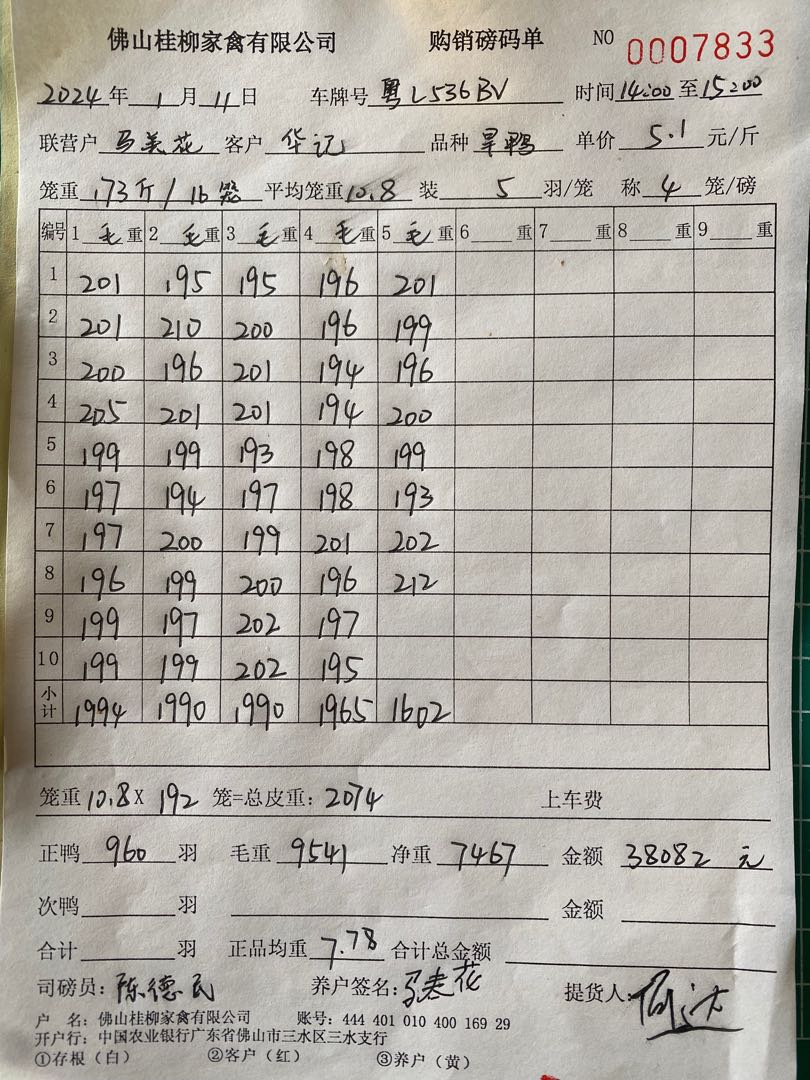 佛山桂柳家禽有限公司 购销磅码单 NO 0007833
2024年 1月 11日 车牌号 粤L536BV 时间 14:00 至 15:00
联营户 马美花 客户 华记 品种 旱鸭 单价 5.1 元/斤
笼重 173斤/16笼 平均笼重 10.8 装 5 羽/笼 称 4 笼/磅
编号 1 毛 重 2 毛 重 3 毛 重 4 毛 重 5 毛 重 6 重 7 重 8 重 9 重
1 201 195 195 196 201
2 201 210 200 196 199
3 200 196 201 194 196
4 205 201 201 194 200
5 199 199 193 198 199
6 197 194 197 198 193
7 197 200 199 201 202
8 196 199 200 196 212
9 199 197 202 197
10 199 199 202 195
小计 1994 1990 1990 1965 1602
笼重 10.8 X 192 笼=总皮重: 2074 上车费
正鸭 960 羽 毛重 9541 净重 7467 金额 38082 元
次鸭 羽 金额
合计 羽 正品均重 7.78 合计总金额
司磅员: 陈德民 养户签名: 马美花 提货人:
户 名: 佛山桂柳家禽有限公司 账号: 444 401 010 400 169 29
开户行: 中国农业银行广东省佛山市三水区三水支行
①存根(白) ②客户(红) ③养户(黄)